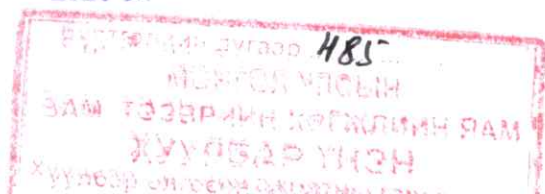 Бүртгэлийн дугаар 485
МОНГОЛ УЛСЫН
ЗАМ ТЭЭВРИЙН ХӨГЖЛИЙН ЯАМ
ХУУЛБАР ҮНЭН
Хуулбар